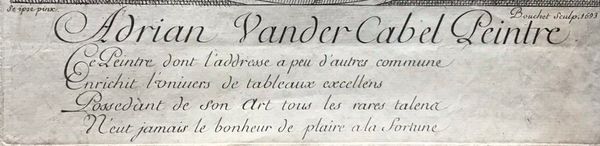 Se ipse pinx.
Bouchet Sculp. 1693
Adrian Vander Cabel Peintre
Ce Peintre dont l'addresse a peu d'autres commune
Enrichit l'univers de tableaux excellens
Possedant de son Art tous les rares talens
N'eut jamais le bonheur de plaire a la fortune